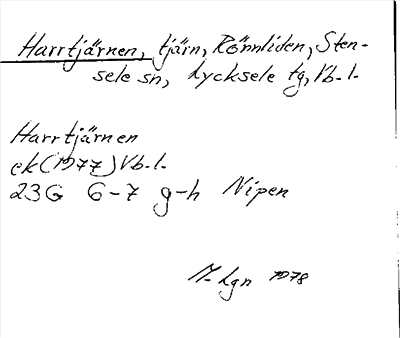 Harrtjärnen, tjärn, Rönnliden, Sten-
sele sn, Lycksele tg, Vb. l.
Harrtjärnen
ek (1977) Vb. l.
23G 6-7 g-h Nipen
1978